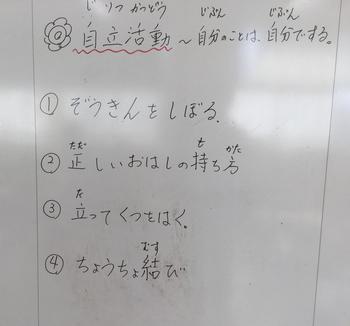 じりつかつどう じぶん じぶん
@ 自立活動 ~ 自分のことは、自分でする。
① ぞうきんをしぼる。
ただ も かた
② 正しいおはしの持ち方
た
③ 立ってくつをはく。
むす
④ ちょうちょ結び